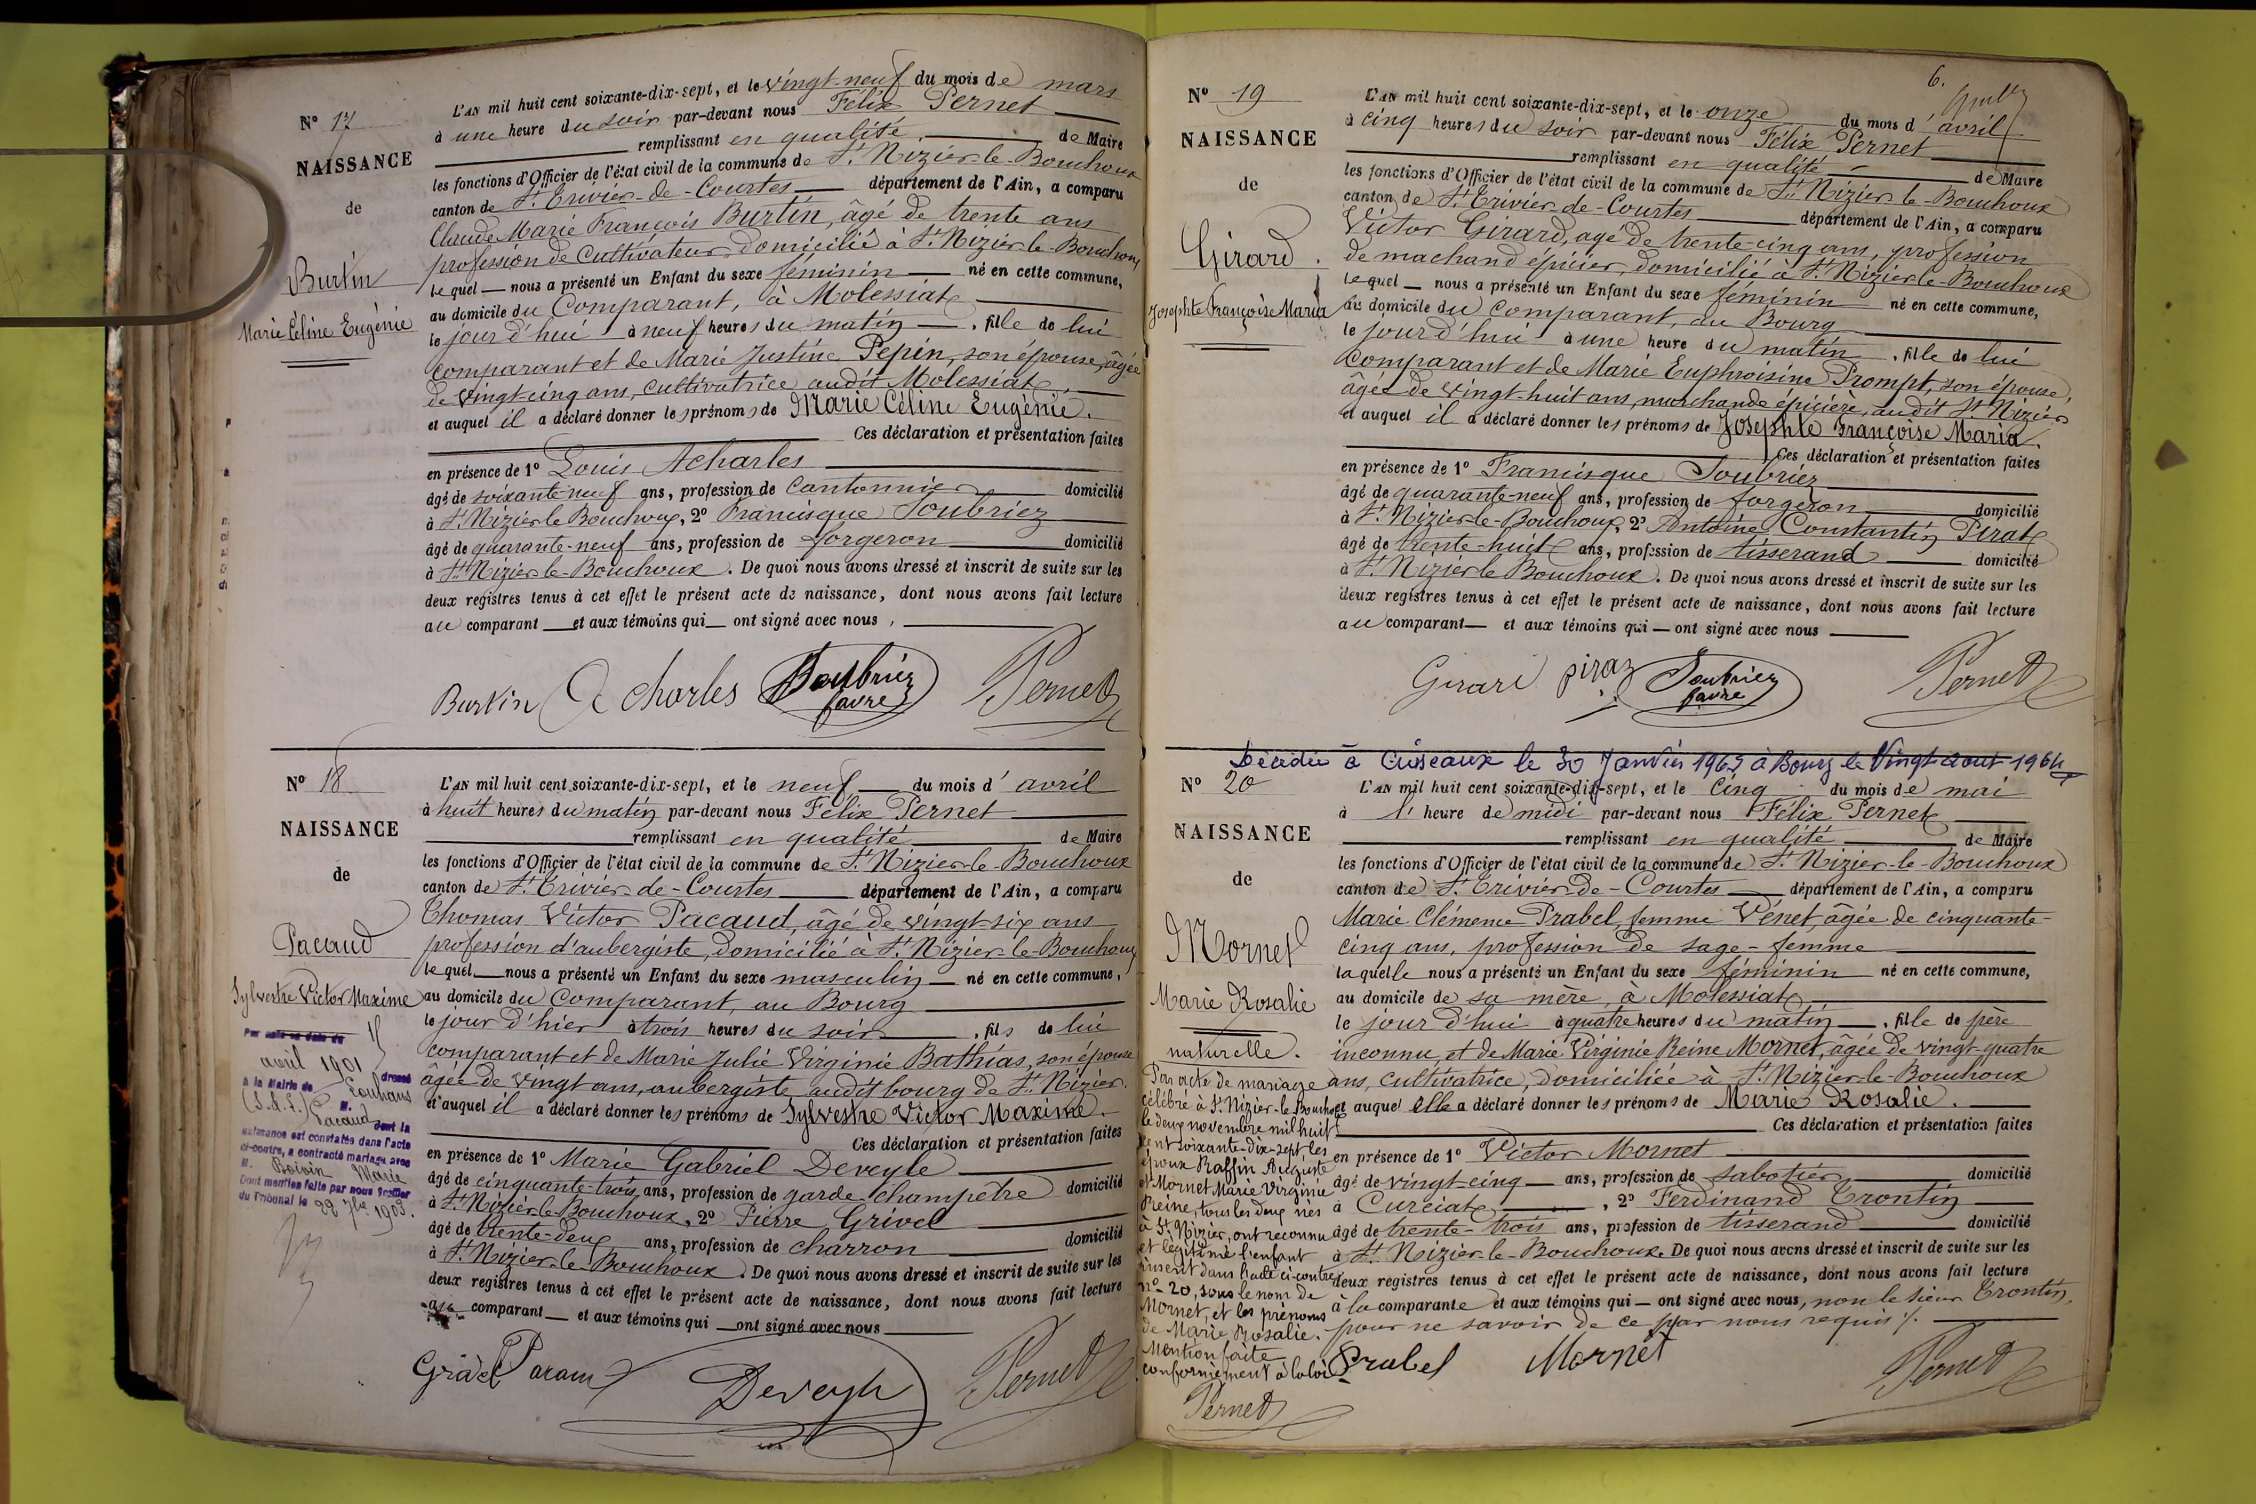 N° 17
NAISSANCE
de
Burtin
Marie Céline Eugénie
L'AN mil huit cent soixante-dix-sept, et le vingt-neuf du mois de mars
à une heure du soir par-devant nous Félix Pernet
remplissant en qualité de Maire
les fonctions d'Officier de l'état civil de la commune de St Nizier-le-Bouchoux
canton de St Trivier-de-Courtes département de l'Ain, a comparu
Claude Marie François Burtin, âgé de trente ans
profession de cultivateur, domicilié à St Nizier-le-Bouchoux
lequel nous a présenté un Enfant du sexe féminin né en cette commune,
au domicile du Comparant, à Molessiat
le jour d'hui à neuf heures du matin, fille de lui
comparant et de Marie Justine Pepin, son épouse, âgée
de vingt-cinq ans, cultivatrice audit Molessiat,
et auquel il a déclaré donner les prénoms de Marie Céline Eugénie.
Ces déclaration et présentation faites
en présence de 1° Louis Acharles
âgé de soixante-neuf ans, profession de Cantonnier domicilié
à St Nizier-le-Bouchoux, 2° Francisque Soubriez
âgé de quarante-neuf ans, profession de forgeron domicilié
à St Nizier-le-Bouchoux. De quoi nous avons dressé et inscrit de suite sur les
deux registres tenus à cet effet le présent acte de naissance, dont nous avons fait lecture
au comparant et aux témoins qui ont signé avec nous,
Burtin Acharles Soubriez favre Pernet
N° 18
NAISSANCE
de
Pacaud
Sylvestre Victor Maxime
Par acte en date du
avril 1901 dressé
à la Mairie de Louhans
(S.&L.) M.
Pacaud dont la
naissance est constatée dans l'acte
ci-contre, a contracté mariage avec
M. Boivin Marie
Dont mention faite par nous Greffier
du Tribunal le 22 7bre 1903.
L'AN mil huit cent soixante-dix-sept, et le neuf du mois d'avril
à huit heures du matin par-devant nous Félix Pernet
remplissant en qualité de Maire
les fonctions d'Officier de l'état civil de la commune de St Nizier-le-Bouchoux
canton de St Trivier-de-Courtes département de l'Ain, a comparu
Thomas Victor Pacaud, âgé de vingt-six ans
profession d'aubergiste, domicilié à St Nizier-le-Bouchoux
lequel nous a présenté un Enfant du sexe masculin né en cette commune,
au domicile du Comparant, au Bourg
le jour d'hier à trois heures du soir, fils de lui
comparant et de Marie Julie Virginie Bathias, son épouse
âgée de vingt ans, aubergiste audit bourg de St Nizier.
et auquel il a déclaré donner les prénoms de Sylvestre Victor Maxime.
Ces déclaration et présentation faites
en présence de 1° Marie Gabriel Deveyle
âgé de cinquante-trois ans, profession de garde champêtre domicilié
à St Nizier-le-Bouchoux, 2° Pierre Grivel
âgé de trente-deux ans, profession de charron domicilié
à St Nizier-le-Bouchoux. De quoi nous avons dressé et inscrit de suite sur les
deux registres tenus à cet effet le présent acte de naissance, dont nous avons fait lecture
au comparant et aux témoins qui ont signé avec nous
Pernet
6.
N° 19
NAISSANCE
de
Girard
Josephte Françoise Maria
L'AN mil huit cent soixante-dix-sept, et le onze du mois d'avril
à cinq heures du soir par-devant nous Félix Pernet
remplissant en qualité de Maire
les fonctions d'Officier de l'état civil de la commune de St Nizier-le-Bouchoux
canton de St Trivier-de-Courtes département de l'Ain, a comparu
Victor Girard, agé de trente-cinq ans, profession
de machand épicier, domicilié à St Nizier-le-Bouchoux
lequel nous a présenté un Enfant du sexe féminin né en cette commune,
au domicile du Comparant, au Bourg
le jour d'hui à une heure du matin, fille de lui
comparant et de Marie Euphroisine Prompt, son épouse,
âgée de vingt-huit ans, marchande épicière, audit St Nizier
et auquel il a déclaré donner les prénoms de Josephte Françoise Maria.
Ces déclaration et présentation faites
en présence de 1° Francisque Soubriez
âgé de quarante-neuf ans, profession de forgeron domicilié
à St Nizier-le-Bouchoux, 2° Antoine Constantin Pirat
âgé de trente-huit ans, profession de tisserand domicilié
à St Nizier-le-Bouchoux. De quoi nous avons dressé et inscrit de suite sur les
deux registres tenus à cet effet le présent acte de naissance, dont nous avons fait lecture
au comparant et aux témoins qui ont signé avec nous
Girard Soubriez favre Pernet
Décédée à Cuiseaux le 30 Janvier à Bourg le Vingt aout 1964
N° 20
NAISSANCE
de
Mornet
Marie Rosalie
naturelle.
Par acte de mariage
célébré à St Nizier-le-Bouchoux
le deux novembre mil huit
cent soixante-dix-sept les
époux Raffin Auguste
et Mornet Marie Virginie
Reine, tous les deux nés
à St Nizier, ont reconnu
et légitimé l'enfant
inscrit dans l'acte ci-contre
n° 20, sous le nom de
Mornet, et les prénoms
de Marie Rosalie.
Mention faite
conformément à la loi
Pernet
L'AN mil huit cent soixante-dix-sept, et le cinq du mois de mai
à l' heure de midi par-devant nous Félix Pernet
remplissant en qualité de Maire
les fonctions d'Officier de l'état civil de la commune de St Nizier-le-Bouchoux
canton de St Trivier-de-Courtes département de l'Ain, a comparu
Marie Clémence Prabel, femme Vénet, âgée de cinquante-
cinq ans, profession de sage-femme
laquelle nous a présenté un Enfant du sexe féminin né en cette commune,
au domicile de sa mère, à Molessiat
le jour d'hui à quatre heures du matin, fille de père
inconnu, et de Marie Virginie Reine Mornet, âgée de vingt-quatre
ans, cultivatrice, domiciliée à St Nizier-le-Bouchoux
et auquel elle a déclaré donner les prénoms de Marie Rosalie.
Ces déclaration et présentation faites
en présence de 1° Victor Mornet
âgé de vingt-cinq ans, profession de sabotier domicilié
à Curciat, 2° Ferdinand Trontin
âgé de trente-trois ans, profession de tisserand domicilié
à St Nizier-le-Bouchoux. De quoi nous avons dressé et inscrit de suite sur les
deux registres tenus à cet effet le présent acte de naissance, dont nous avons fait lecture
à la comparante et aux témoins qui ont signé avec nous, non le sieur Trontin,
pour ne savoir de ce par nous requis.
Prabel Mornet Pernet